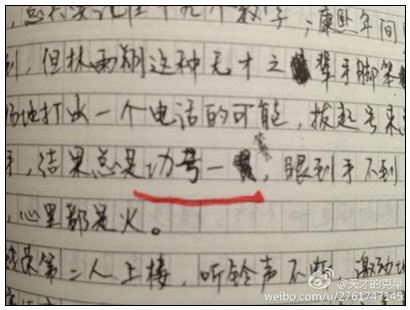 个数字；康熙年间
到，但林雨翔这种无才之辈手脚笨
场地打出一个电话的可能，拨起号来
手，结果总是功号一，眼到手不到
，心里都是火。
第二人上楼，听铃声不断，激动地
@天才的克星
weibo.com/u/2761747145